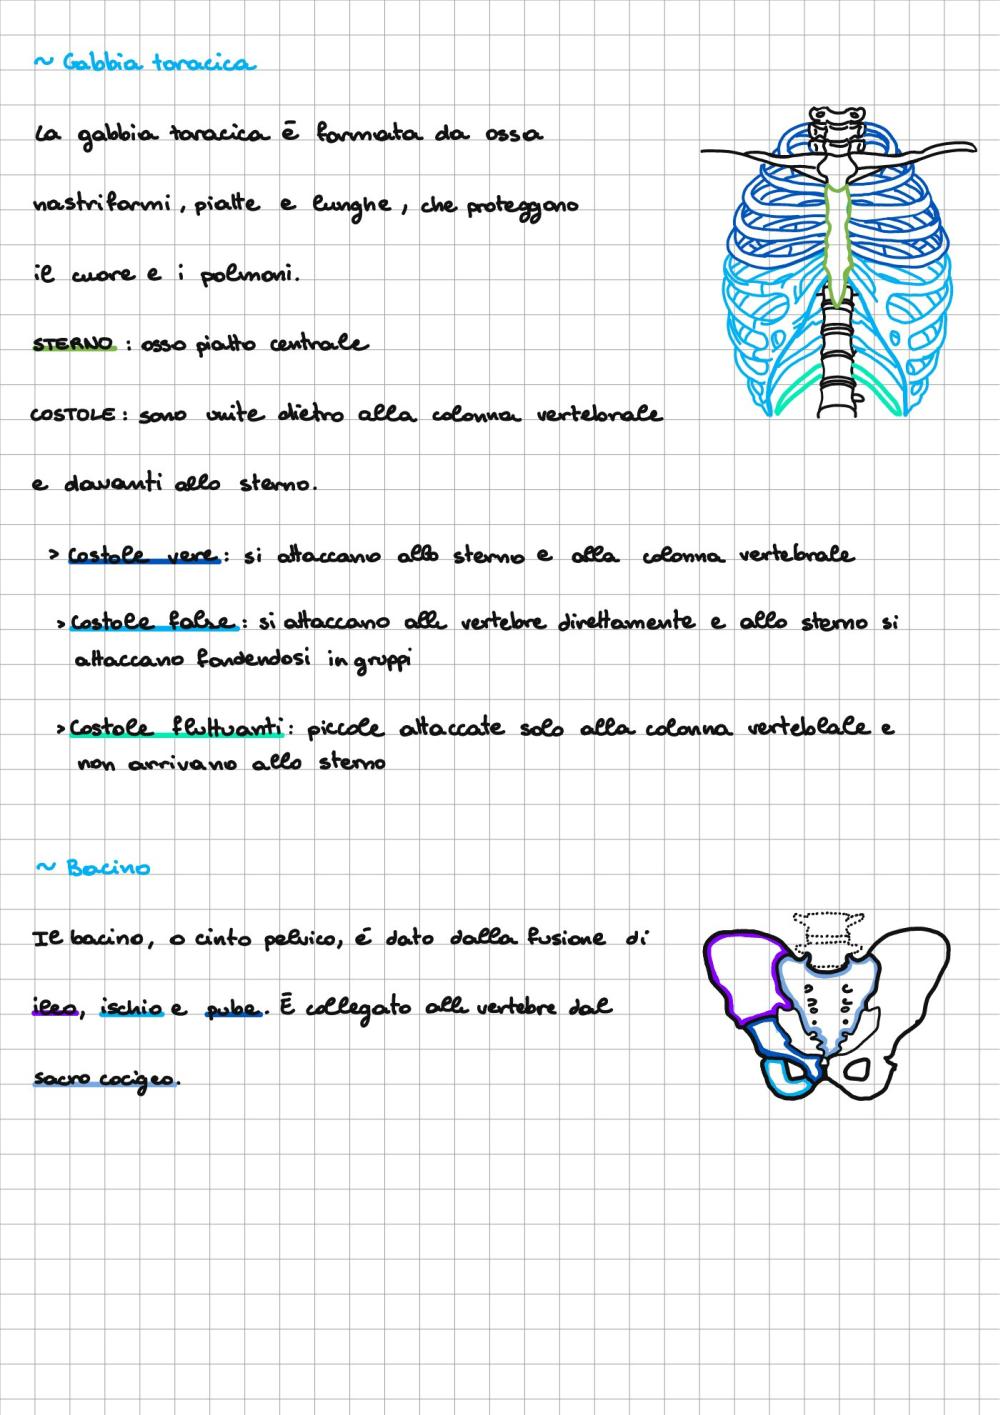 ~ Gabbia toracica
La gabbia toracica é formata da ossa
nastriformi, piatte e lunghe, che proteggono
il cuore e i polmoni.
STERNO : osso piatto centrale
COSTOLE : sono unite dietro alla colonna vertebrale
e davanti allo sterno.
> Costole vere : si attaccano allo sterno e alla colonna vertebrale
> Costole false : si attaccano alle vertebre direttamente e allo sterno si
attaccano fondendosi in gruppi
> Costole fluttuanti : piccole attaccate solo alla colonna verteblale e
non arrivano allo sterno
~ Bacino
Il bacino, o cinto pelvico, é dato dalla fusione di
ileo, ischio e pube. É collegato alle vertebre dal
sacro cocigeo.